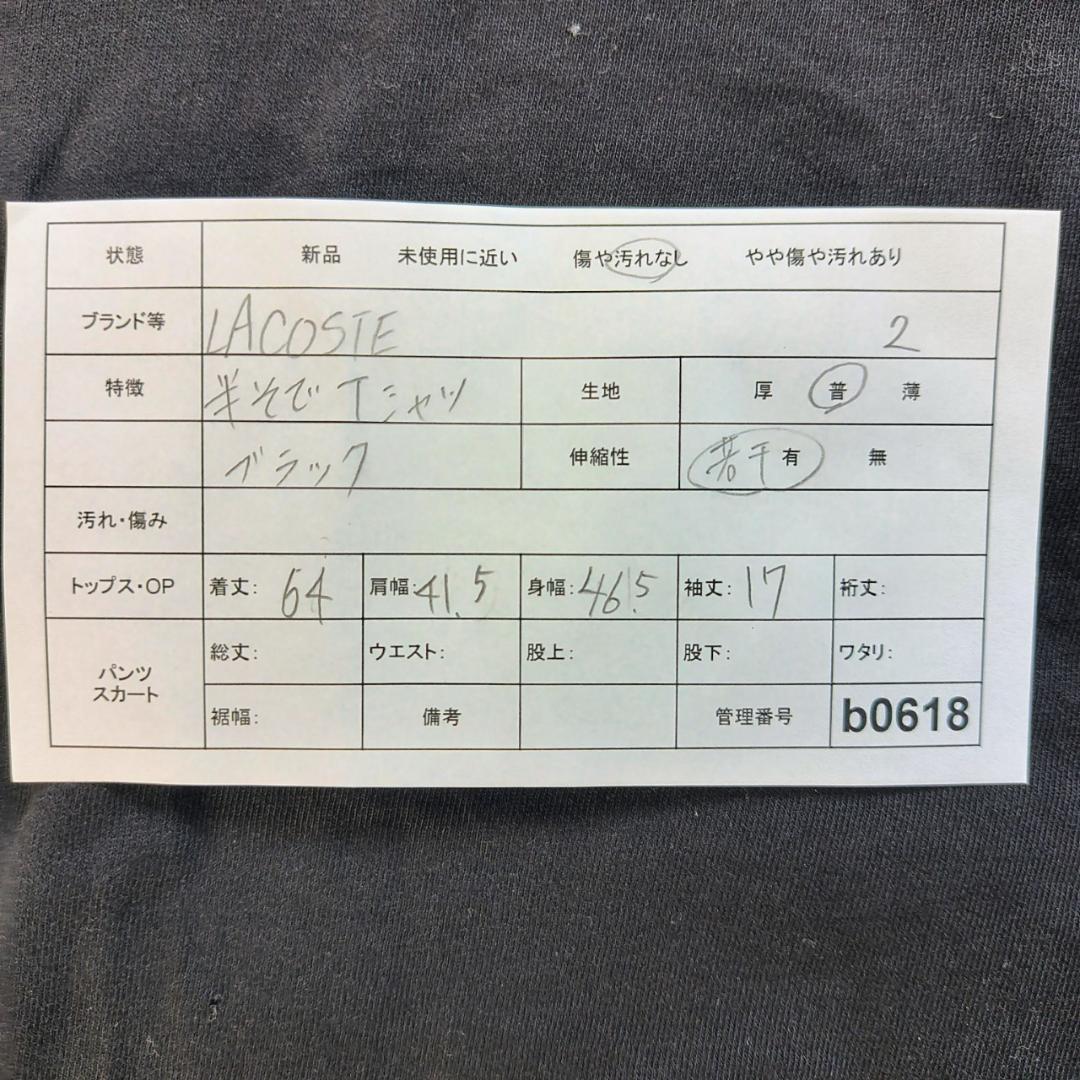 状態 新品 未使用に近い 傷や汚れなし やや傷や汚れあり
ブランド等 LACOSTE 2
特徴 半そで Tシャツ 生地 厚 普 薄
ブラック 伸縮性 若干 有 無
汚れ・傷み
トップス・OP 着丈: 64 肩幅: 41.5 身幅: 46.5 袖丈: 17 裄丈:
パンツ スカート 総丈: ウエスト: 股上: 股下: ワタリ:
裾幅: 備考 管理番号 b0618